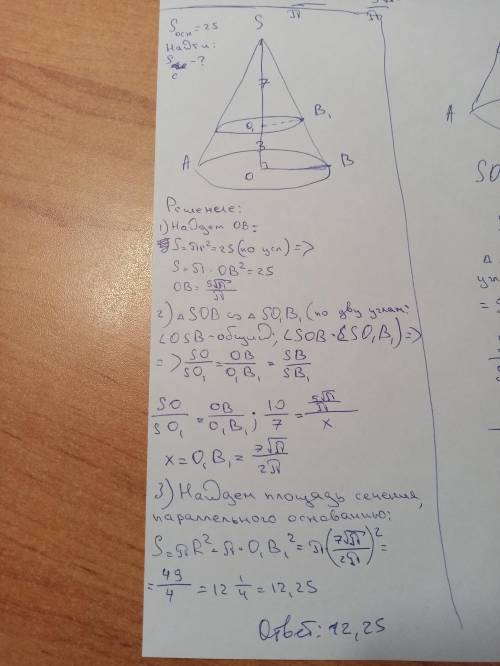 Sосн = 25
Найти:
S
с
- ?
S
7
O₁
B₁
3
A
O
B
A
SO
Решение:
1) Найдем OB:
S = πR² = 25 (по усл) =>
S = π · OB² = 25
OB = 5√π/π
2) △SOB ∾ △SO₁B₁ (по двум углам:
∠OSB - общий; ∠SOB = ∠SO₁B₁) =>
=> SO/SO₁ = OB/O₁B₁ = SB/SB₁
SO/SO₁ = OB/O₁B₁; 10/7 = (5√π/π)/x
x = O₁B₁ = 7√π/2π
3) Найдем площадь сечения,
параллельного основанию:
S = πR² = π · O₁B₁² = π · (7√π/2π)² =
= 49/4 = 12 1/4 = 12,25
Ответ: 12,25